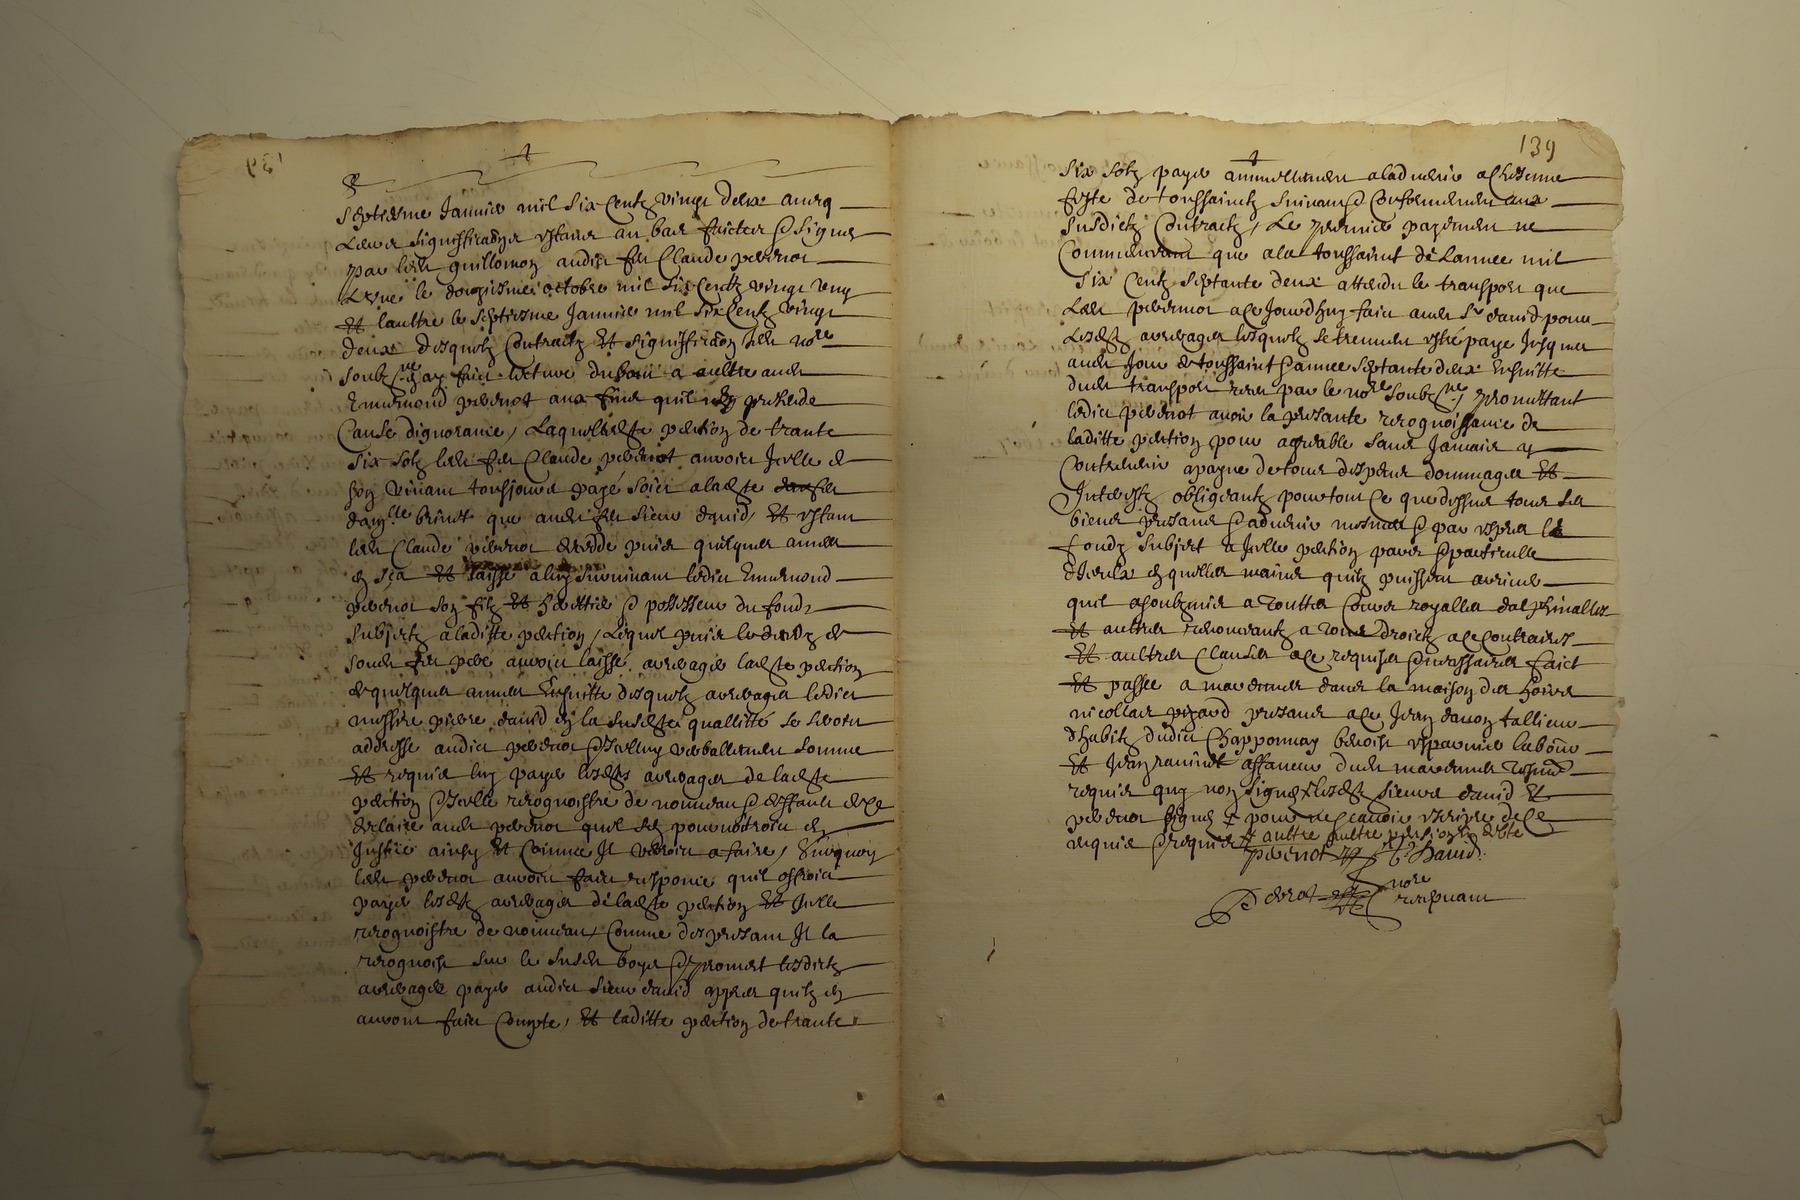 septiesme Janvier mil six Centz vingt deux avecq
La signiffication estant au bas faicte & signee
par led guillomon audict feu Claude peronot
L'une le douziesme octobre mil six Centz vingt ung
Et laultre le septiesme Janvier mil six Centz vingt
deux desquelz Contractz Et signiffication led no.re
soubz.ne ay faict lecture du bout a aultre aud
Ennemond peronot aux fins quil nen pretende
Cause dignorance, Laquelle pention de trante
six solz led feu Claude peronot auroict Icelle de
son vivant tousjours payé soict a lad
dam.lle brinet que aud feu sieur david, Et estant
led Claude peronot decede puis quelques annees
en sça Et laissé a luy survivant ledict Ennemond
peronot son filz Et heritier & possesseur du fondz
subject a laditte pention, Lequel puis le decedz de
sond feu pere auroict laissé arreager lad pention
de quelques annees Ensuitte desquelz arreages ledict
messire pierre david en la susd quallitté se seroict
addressé audict peronot & Icelluy verballement sommé
Et requis luy payer lesd arreages de lad
pention & Icelle recognoistre de nouveau & deffaut de ce
declairé aud peronot quil sen pourvoiroict en
Justice ainsy Et Comme Il verroict a faire, Surquoy
led peronot auroict faict responce quil offroict
payer lesd arreages de lad pention Et Icelle
recognoistre de nouveau, Comme des presant Il la
recognoist sur le susd & promect lesdictz
arreages payer audict sieur david appres quilz en
auront faict Compte, Et laditte pention de trante
139
six solz payer annuellement a ladvenir a chascune
feste de toussainctz suivant & Conformement aux
susdictz Contractz, Le premier payement ne
Commencant que a la toussainct de Lannee mil
six Centz septante deux attendu le transport que
led peronot a ce Jourdhuy faict aud s.r david pour
Lesd arreages lesquelz se treuvent esté payé Jusques
aud Jour de toussainct & annee septante deux Ensuitte
dud transport receu par le no.re soubz.ne, promettant
ledict peronot avoir la presante recognoissance de
laditte pention pour agreable sans Jamais y
Contrevenir a payne de tous despens dommages Et
Interestz obligeantz pour tout Ce que dessus tous ses
biens presans & advenir mesmes & par expres le
fondz subject a Icelle pention & particulle
dIceulx en quelles mains quilz puissent arriver
quil a soubzmis a touttes Cours royalles dalphinalles
Et aultres renonceantz a tous droictz a ce Contraires
Et aultres Clauses a ce requises & necessaires faict
Et passé a dans la maison des hoirs
nicollas pizard presans a ce Jean tallieur
dhabitz dudict Chapponnay benoist labour
Et Jean ravinet affaneur dud tesmoins
requis quy non signé lesd sieurs david Et
peronot signes pour ne scavoir escripre de ce
requis & requis aultre aultre pension
peronot P. David
Perrot no.re
recepvant